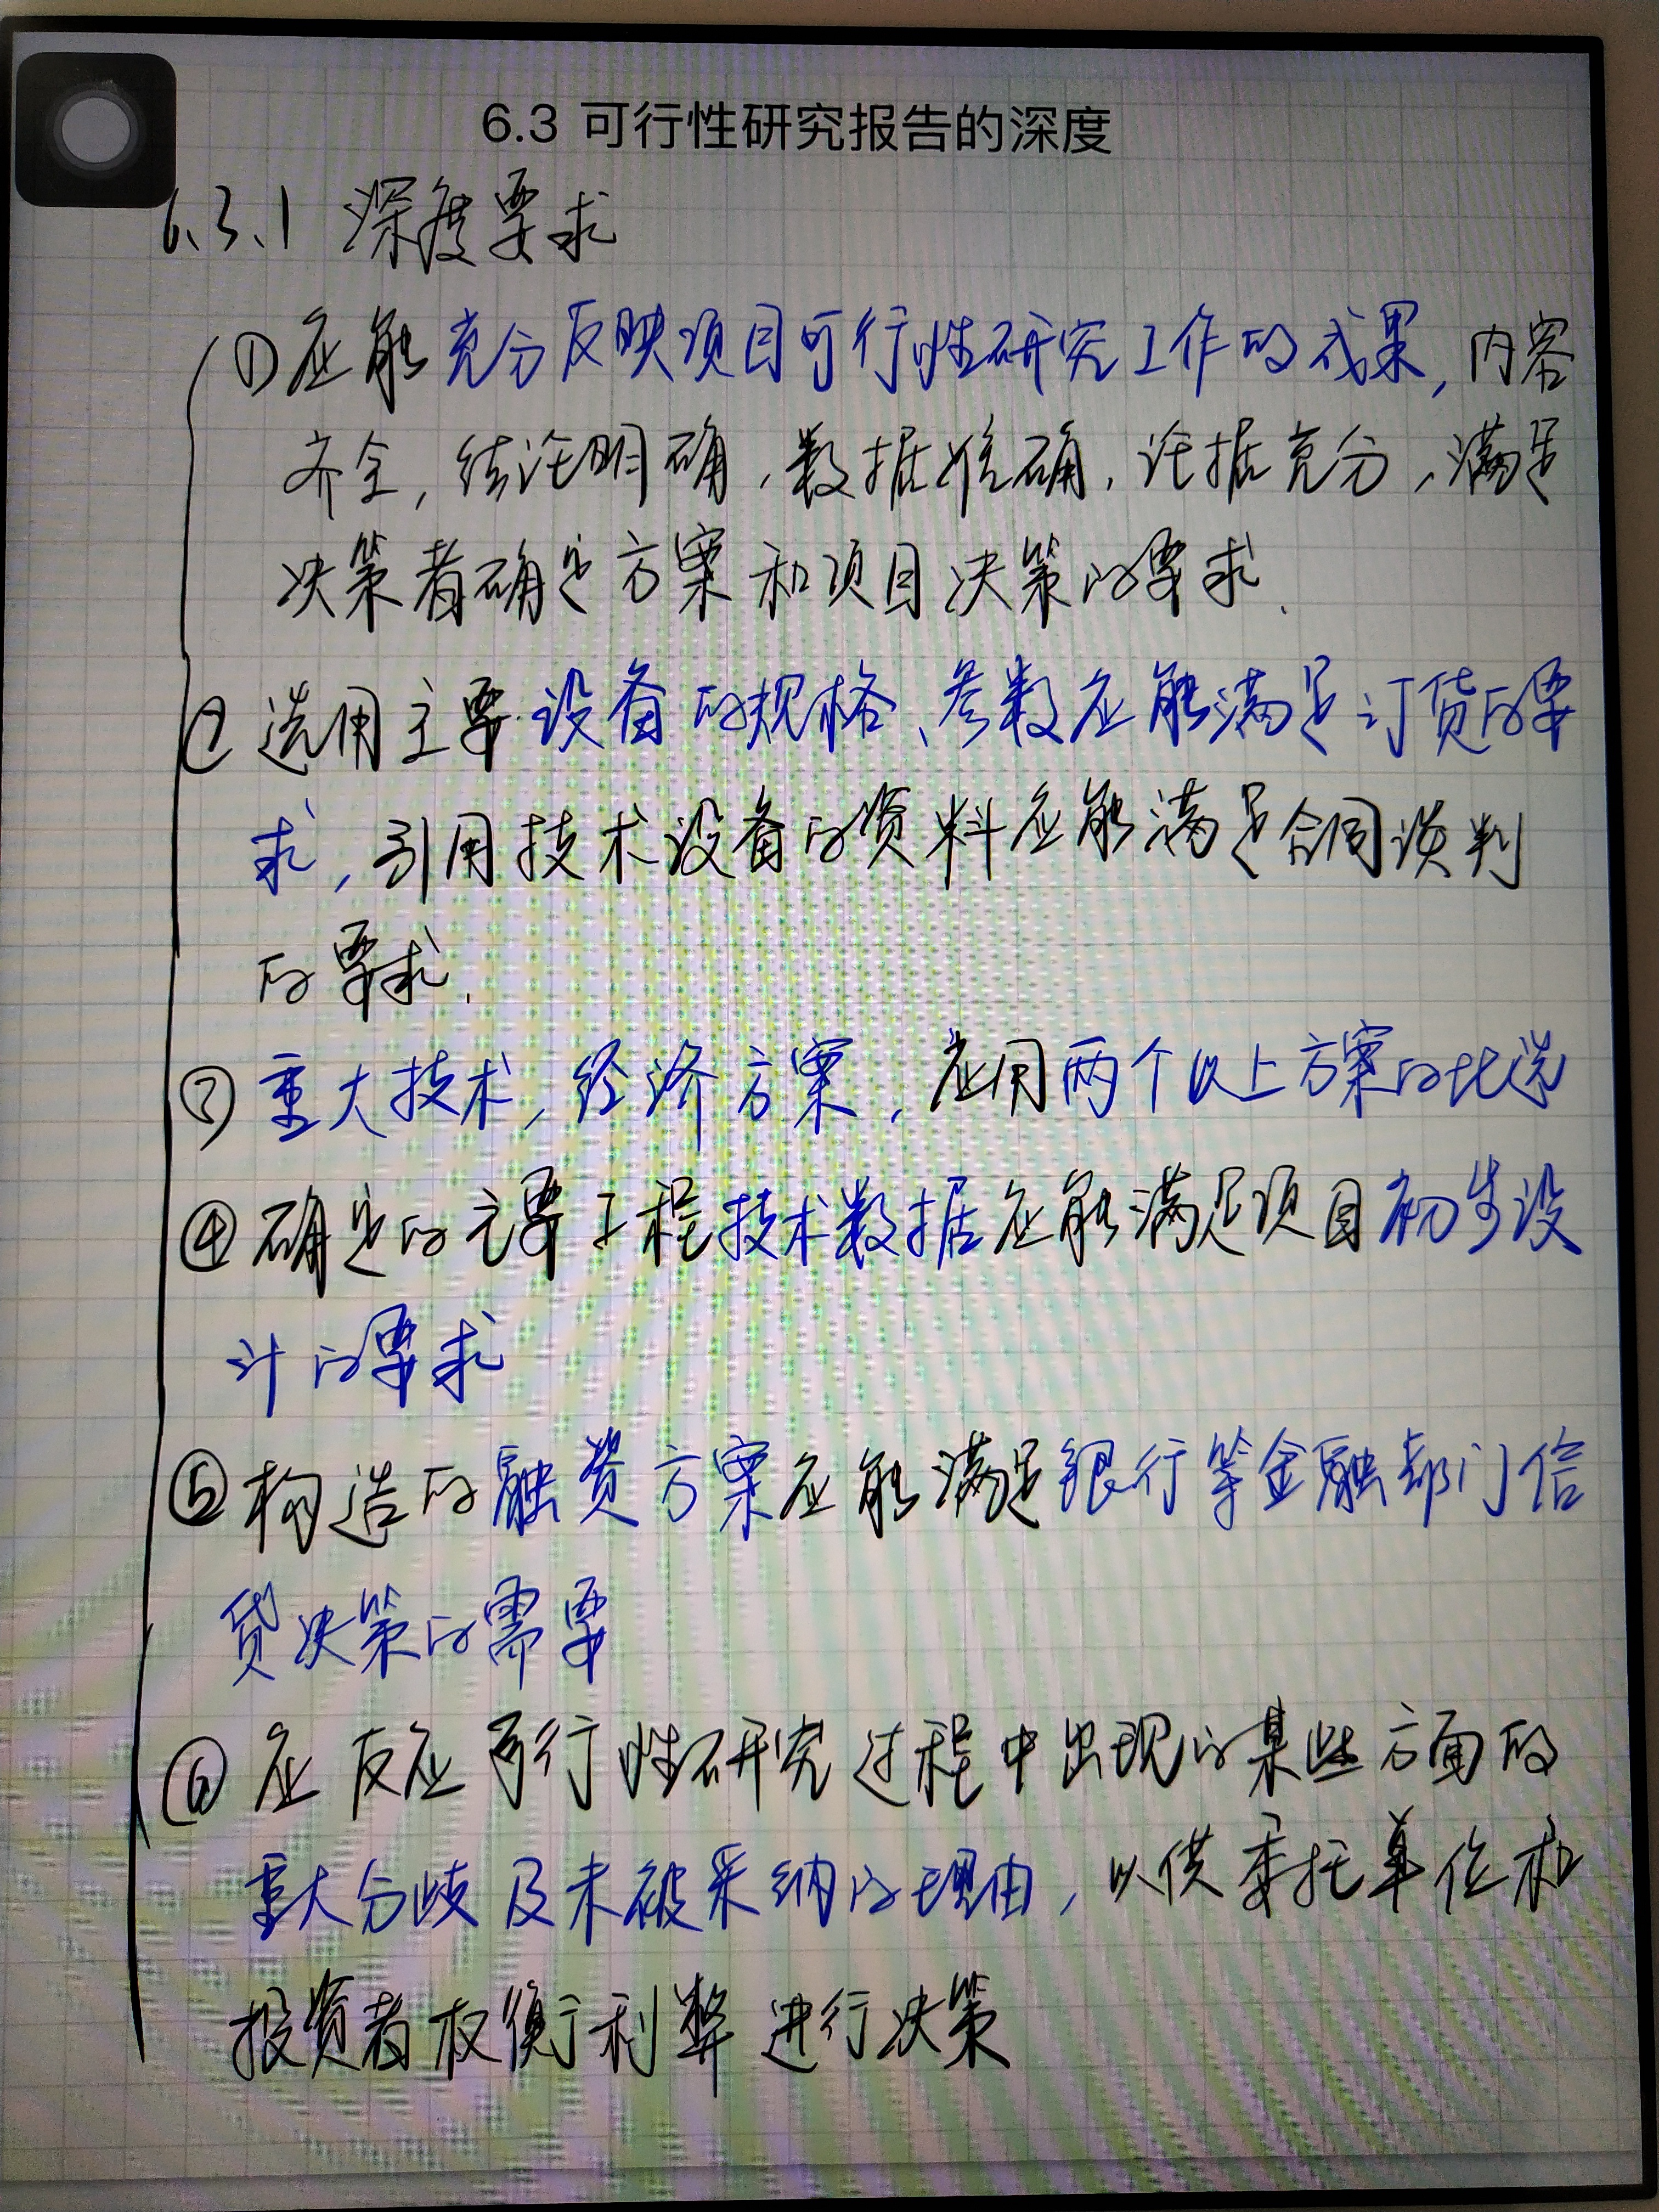 6.3 可行性研究报告的深度
6.3.1 深度要求
① 应能充分反映项目可行性研究工作的成果, 内容
齐全, 结论明确, 数据准确, 论据充分, 满足
决策者确定方案和项目决策的要求.
② 选用主要设备的规格、参数应能满足订货的要
求, 引用技术设备的资料应能满足合同谈判
的要求.
③ 重大技术, 经济方案, 应用两个以上方案的比选
④ 确定的主要工程技术数据应能满足项目初步设
计的要求
⑤ 构造的融资方案应能满足银行等金融部门信
贷决策的需要
⑥ 应反应可行性研究过程中出现的某些方面的
重大分歧及未被采纳的理由, 以供委托单位和
投资者权衡利弊进行决策